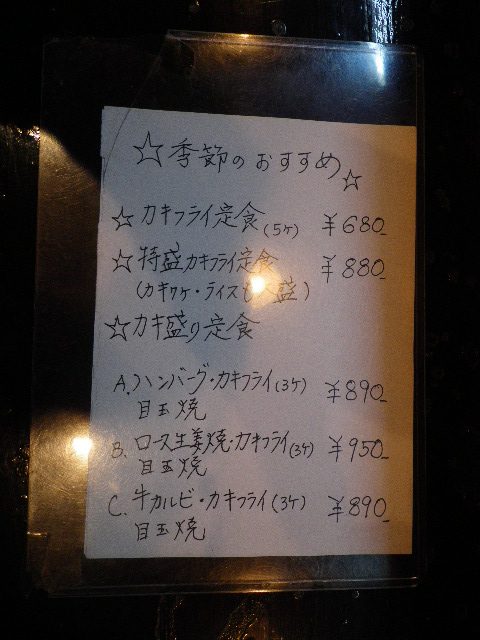 ☆季節のおすすめ☆
☆カキフライ定食(5ケ) ¥680-
☆特盛カキフライ定食 ¥880-
(カキ7ヶ・ライスも大盛)
☆カキ盛り定食
A.ハンバーグ・カキフライ(3ケ) ¥890-
目玉焼
B.ロース生姜焼・カキフライ(3ケ) ¥950-
目玉焼
C.牛カルビ・カキフライ(3ケ) ¥890-
目玉焼